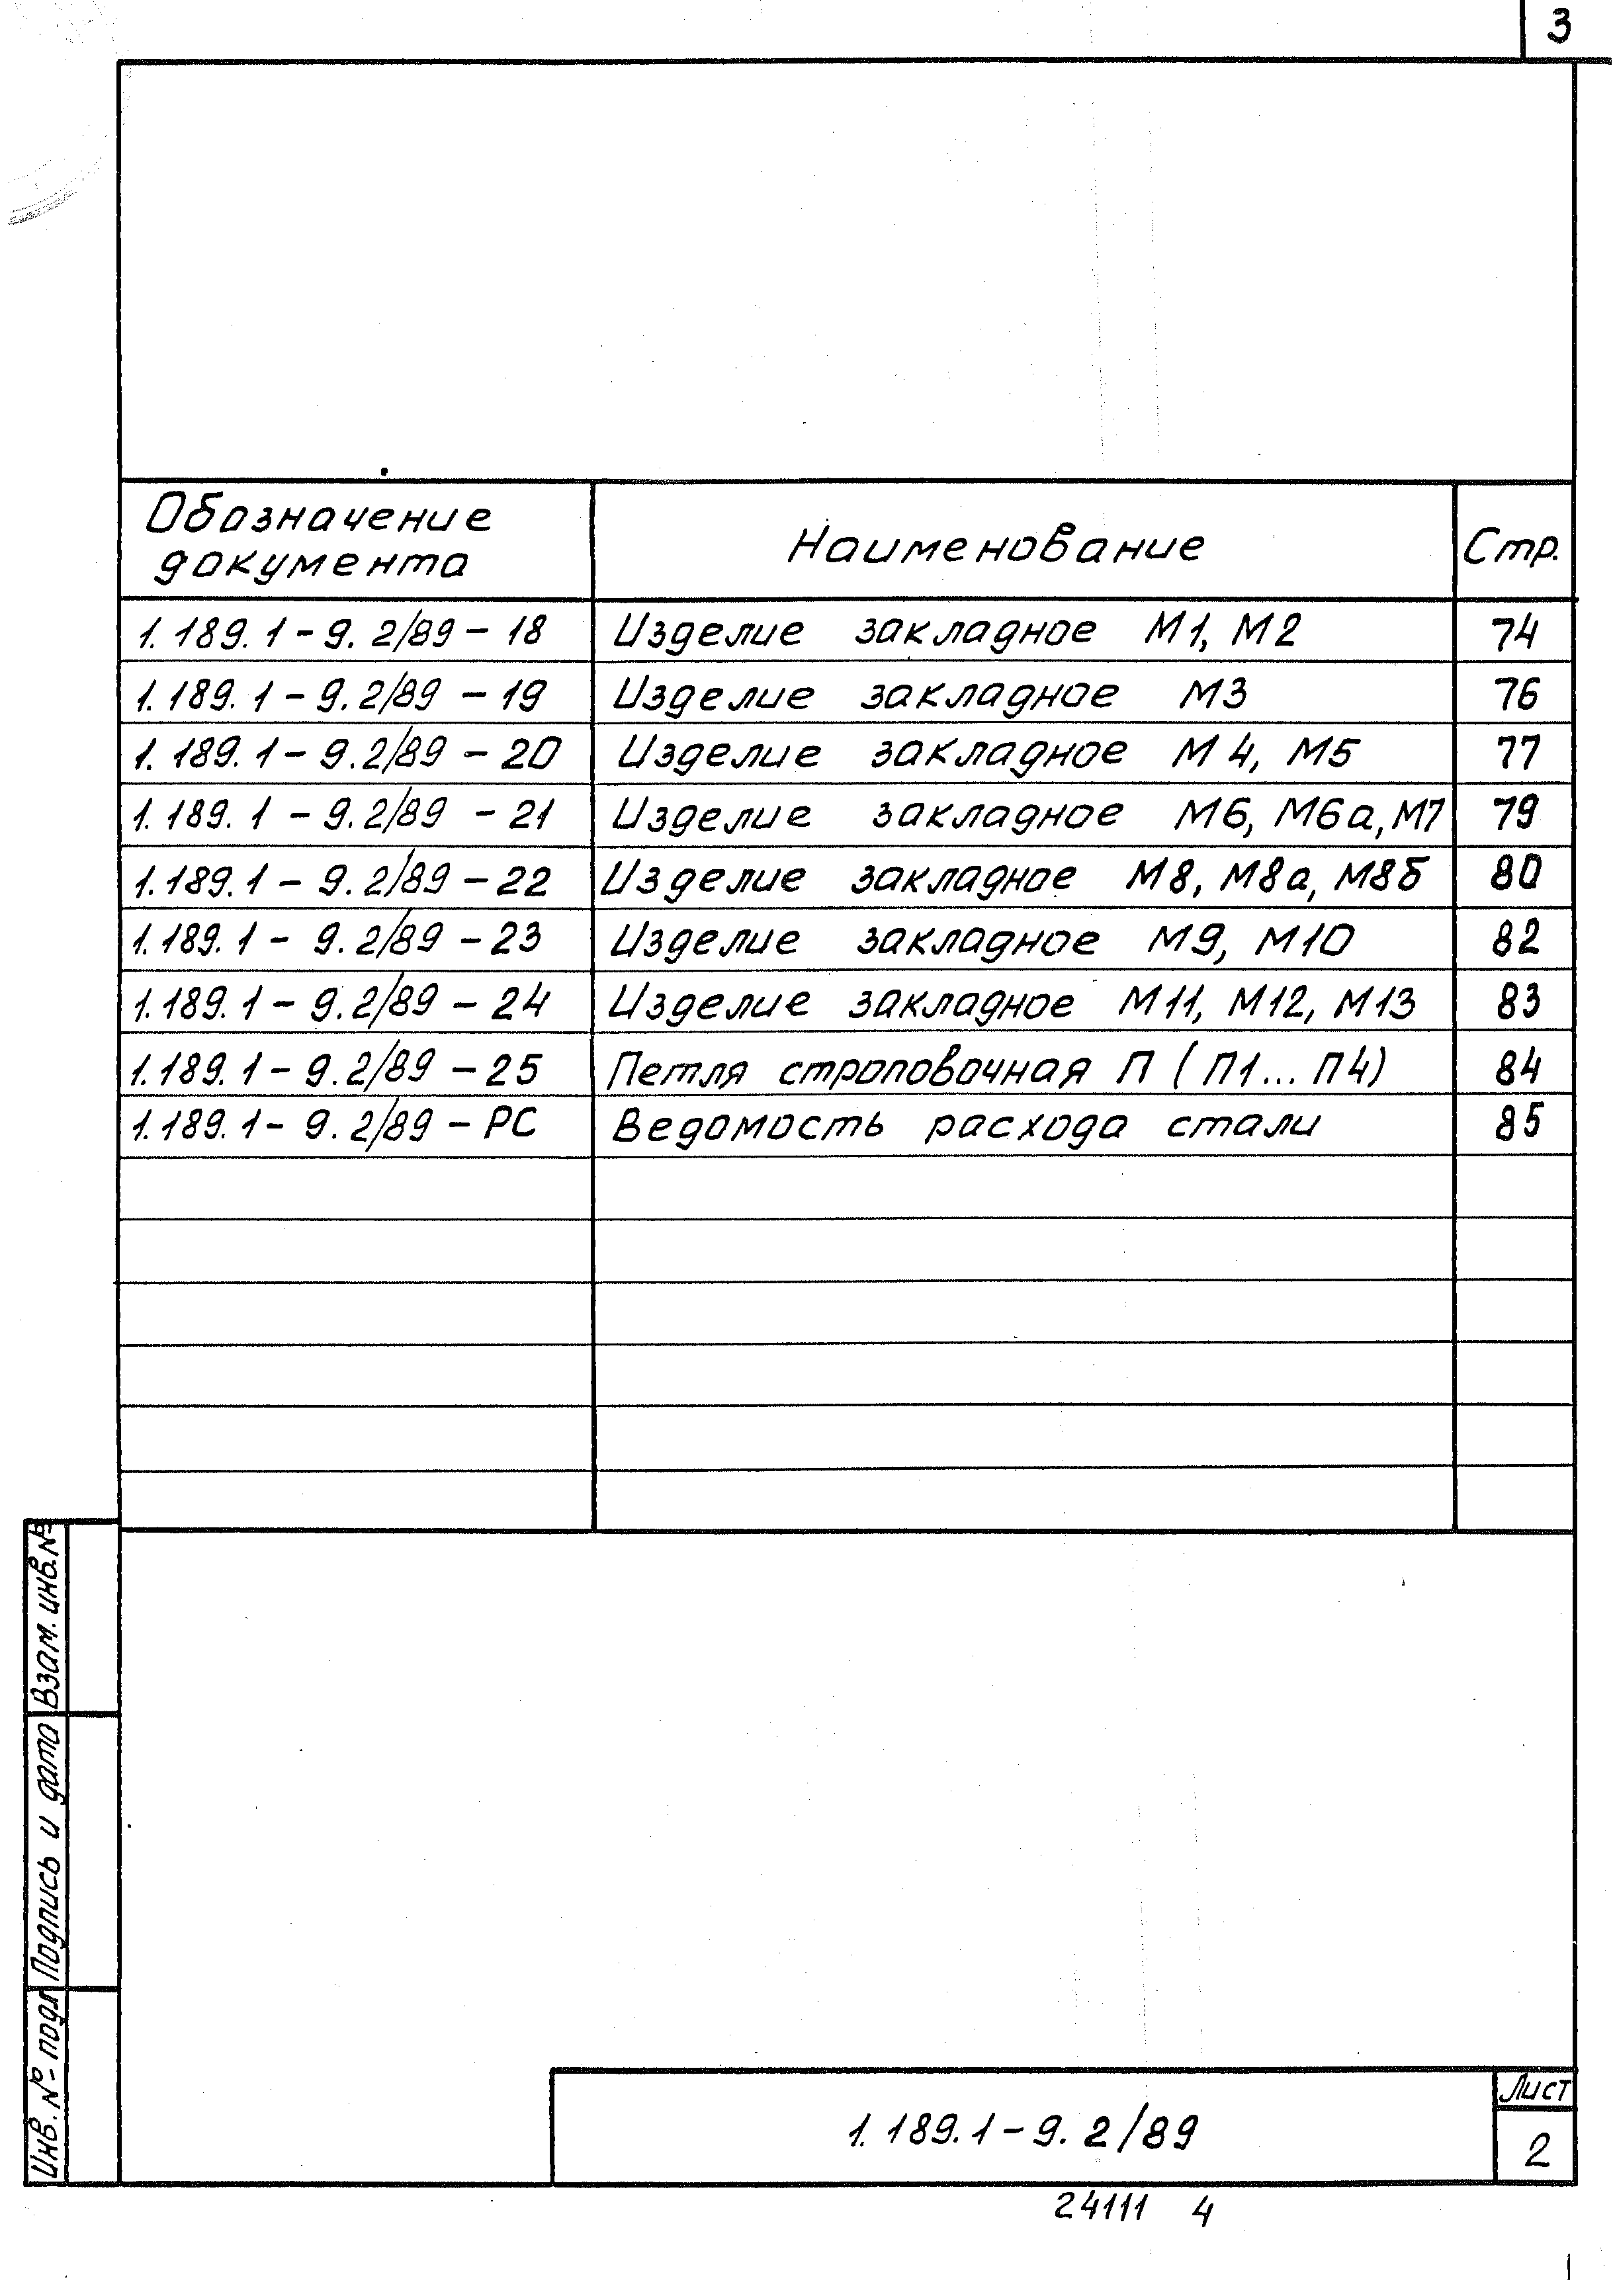 3
Обозначение документа Наименование Стр.
1.189.1-9.2/89-18 Изделие закладное М1, М2 74
1.189.1-9.2/89-19 Изделие закладное М3 76
1.189.1-9.2/89-20 Изделие закладное М4, М5 77
1.189.1-9.2/89-21 Изделие закладное М6, М6а, М7 79
1.189.1-9.2/89-22 Изделие закладное М8, М8а, М8б 80
1.189.1-9.2/89-23 Изделие закладное М9, М10 82
1.189.1-9.2/89-24 Изделие закладное М11, М12, М13 83
1.189.1-9.2/89-25 Петля строповочная П (П1...П4) 84
1.189.1-9.2/89-РС Ведомость расхода стали 85
Взам. инв. №
Подпись и дата
Инв. № подл
1.189.1-9.2/89
Лист
2
24111 4